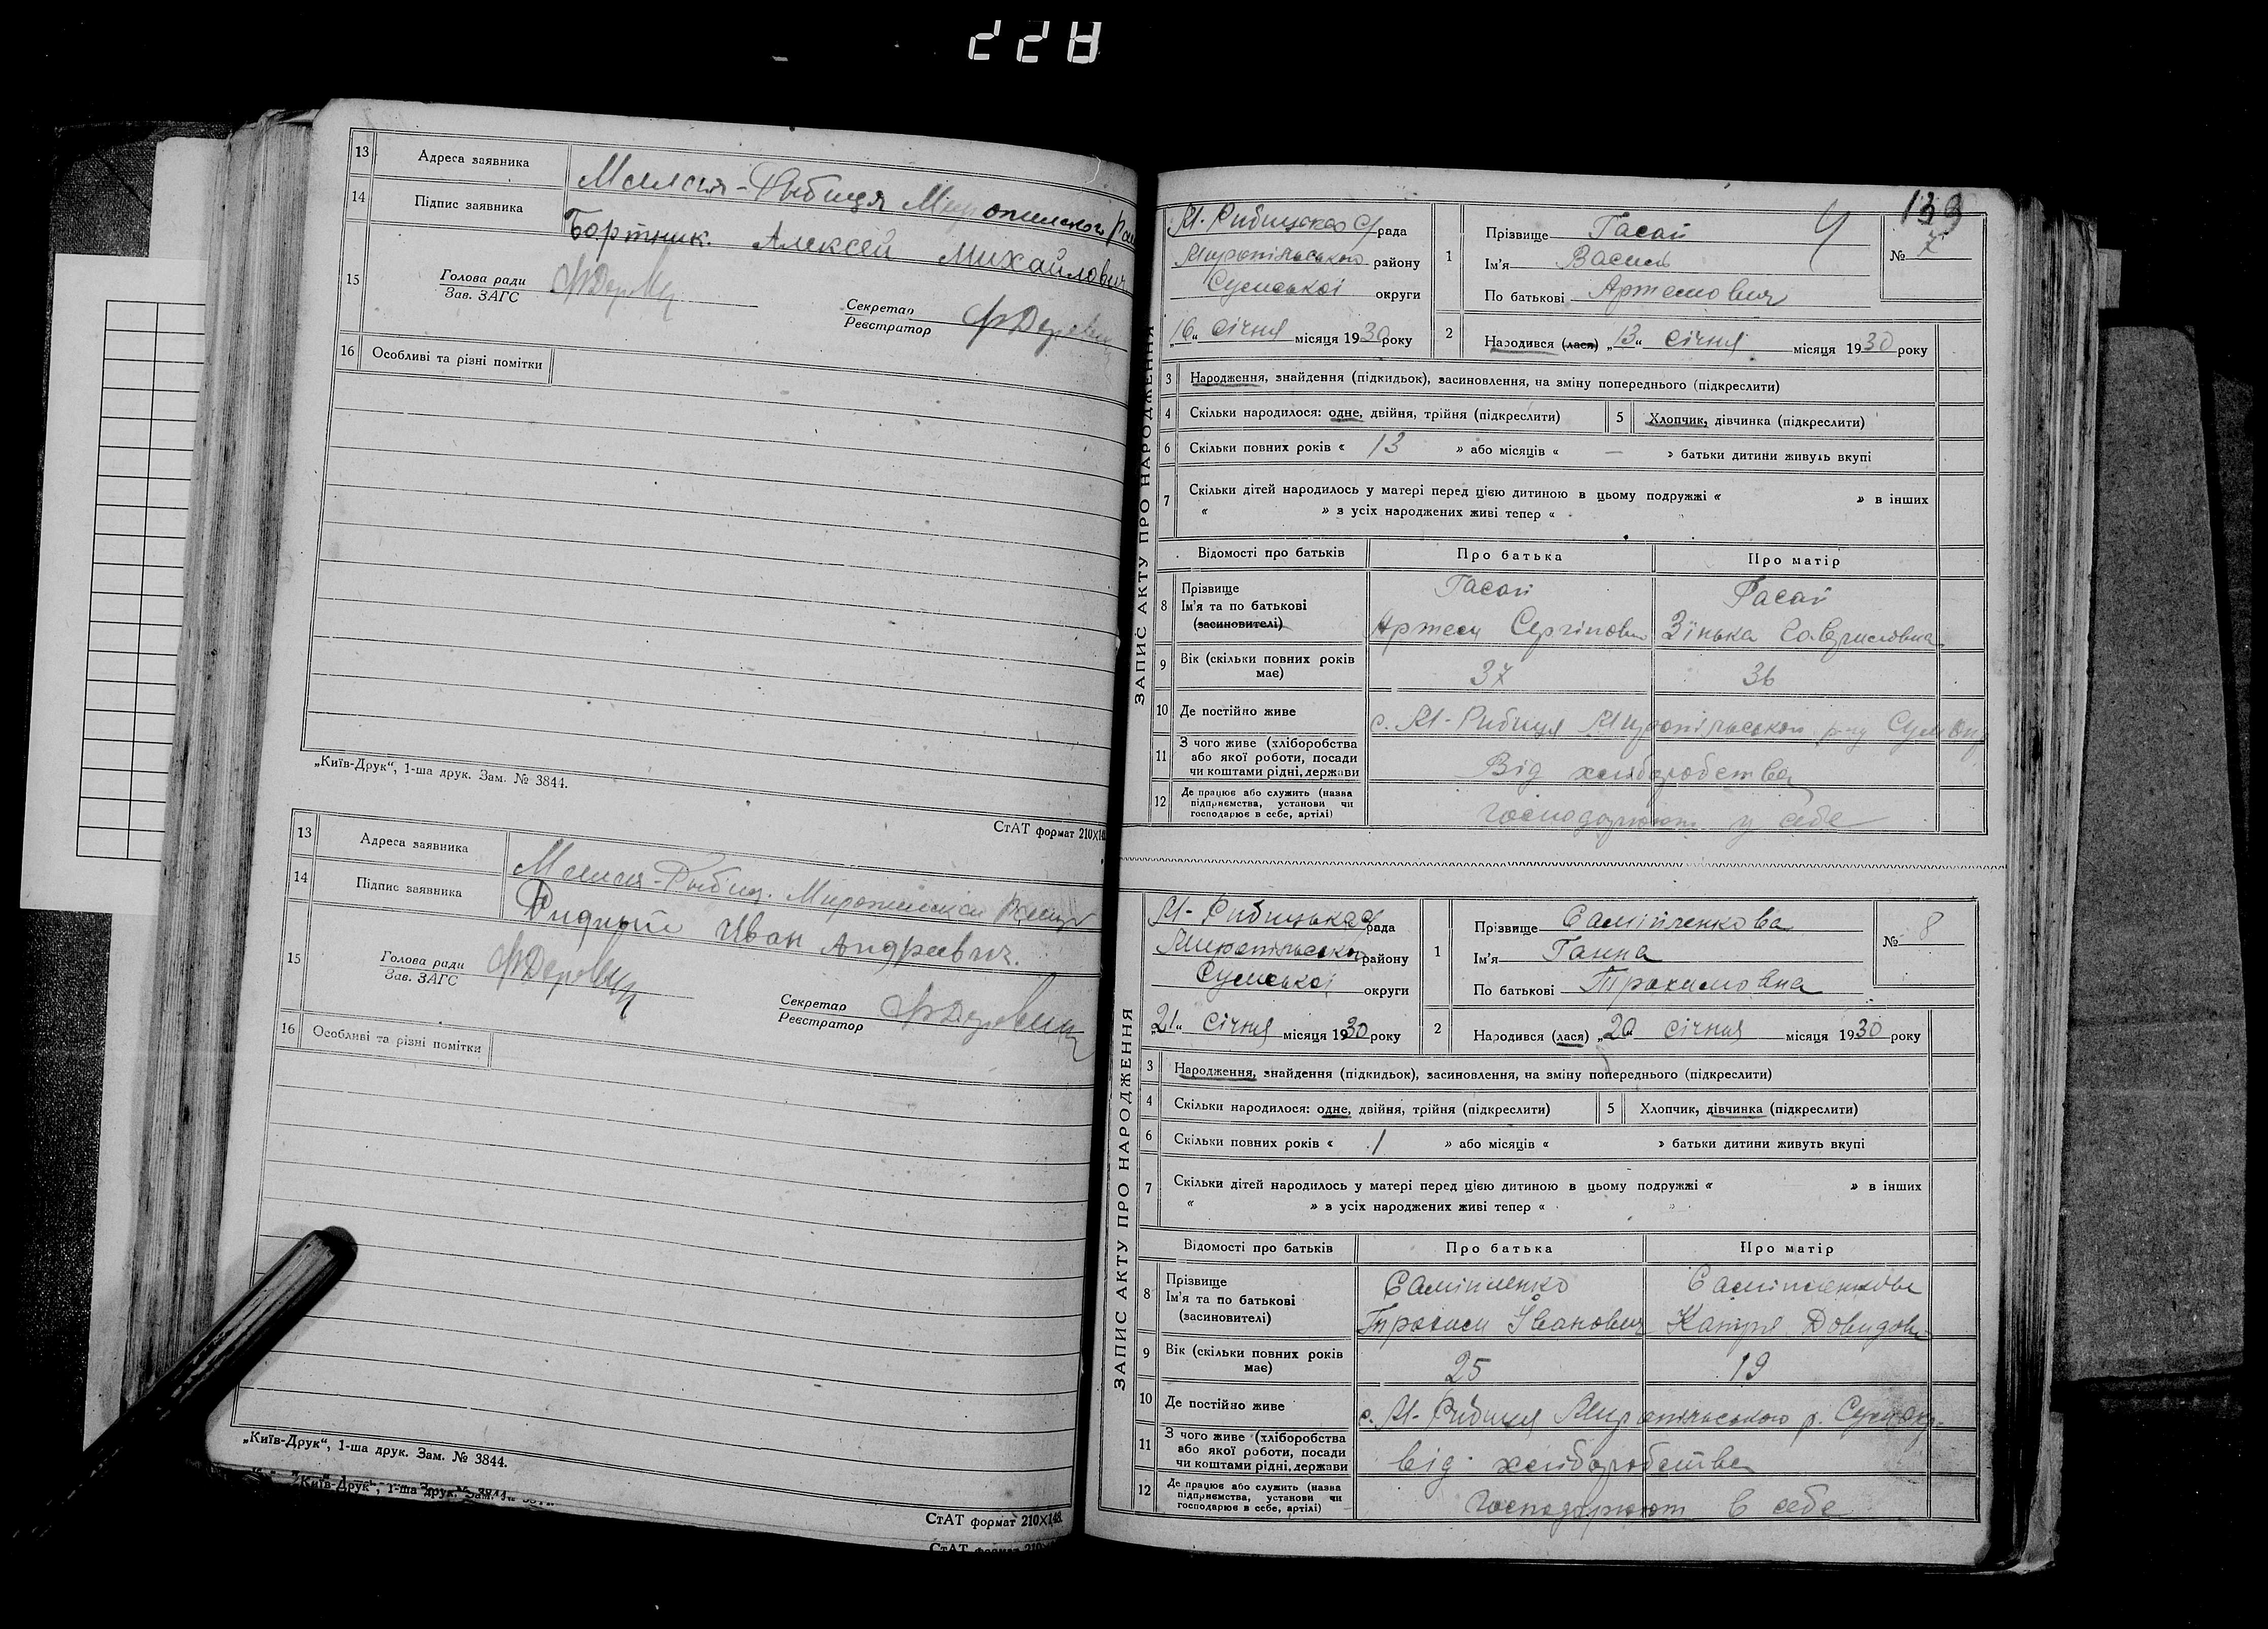 228
13 Адреса заявника Малая-Рыбиця Миропольского
14 Підпис заявника Бортник Алексей Михайлович
15 Голова ради
Зав. ЗАГС
Секретар
Реєстратор
16 Особливі та різні помітки
„Київ-Друк“, 1-ша друк. Зам. № 3844.
СтАТ формат 210×148
13 Адреса заявника Малая-Рыбиц. Миропольской
14 Підпис заявника Иван Андреевич.
15 Голова ради
Зав. ЗАГС
Секретар
Реєстратор
16 Особливі та різні помітки
„Київ-Друк“, 1-ша друк. Зам. № 3844.
„Київ-Друк“, 1-ша друк. Зам. № 3844.
СтАТ формат 210×148.
СтАТ формат 210
139
ЗАПИС АКТУ ПРО НАРОДЖЕННЯ
М-Рибицька с/рада
Миропільського району
Сумської округи
„16“ січня місяця 1930 року
1 Прізвище Гасай
Ім'я Василь
По батькові Артемович
№ 7
2 Народився (лася) „13“ січня місяця 1930 року
3 Народження, знайдення (підкидьок), засиновлення, на зміну попереднього (підкреслити)
4 Скільки народилося: одне, двійня, трійня (підкреслити) 5 Хлопчик, дівчинка (підкреслити)
6 Скільки повних років « 13 » або місяців « — » батьки дитини живуть вкупі
7 Скільки дітей народилось у матері перед цією дитиною в цьому подружжі « » в інших
« » з усіх народжених живі тепер « »
Відомості про батьків Про батька Про матір
8 Прізвище Гасай Гасай
Ім'я та по батькові
(засиновителі) Артем Сергійович Зінька Гаврилівна
9 Вік (скільки повних років має) 37 36
10 Де постійно живе с. М-Рибиця Миропільського р-ну Сум Окр
11 З чого живе (хліборобства
або якої роботи, посади
чи коштами рідні, держави Від хліборобства
12 Де працює або служить (назва
підприємства, установи чи
господарює в себе, артілі) господарюют у себе
ЗАПИС АКТУ ПРО НАРОДЖЕННЯ
М-Рибицька с/рада
Миропільсько району
Сумської округи
„21“ січня місяця 1930 року
1 Прізвище Самійленкова
Ім'я Ганна
По батькові Трохимовна
№ 8
2 Народився (лася) „20 січня місяця 1930 року
3 Народження, знайдення (підкидьок), засиновлення, на зміну попереднього (підкреслити)
4 Скільки народилося: одне, двійня, трійня (підкреслити) 5 Хлопчик, дівчинка (підкреслити)
6 Скільки повних років « 1 » або місяців « » батьки дитини живуть вкупі
7 Скільки дітей народилось у матері перед цією дитиною в цьому подружжі « » в інших
« » з усіх народжених живі тепер « »
Відомості про батьків Про батька Про матір
8 Прізвище Самійленко Самійленкова
Ім'я та по батькові
(засиновителі) Трохим Іванович Катря Довидов
9 Вік (скільки повних років має) 25 19
10 Де постійно живе с. М-Рибиця Миропільського р. Сум Окр.
11 З чого живе (хліборобства
або якої роботи, посади
чи коштами рідні, держави від хліборобства
12 Де працює або служить (назва
підприємства, установи чи
господарює в себе, артілі) господарюют в себе